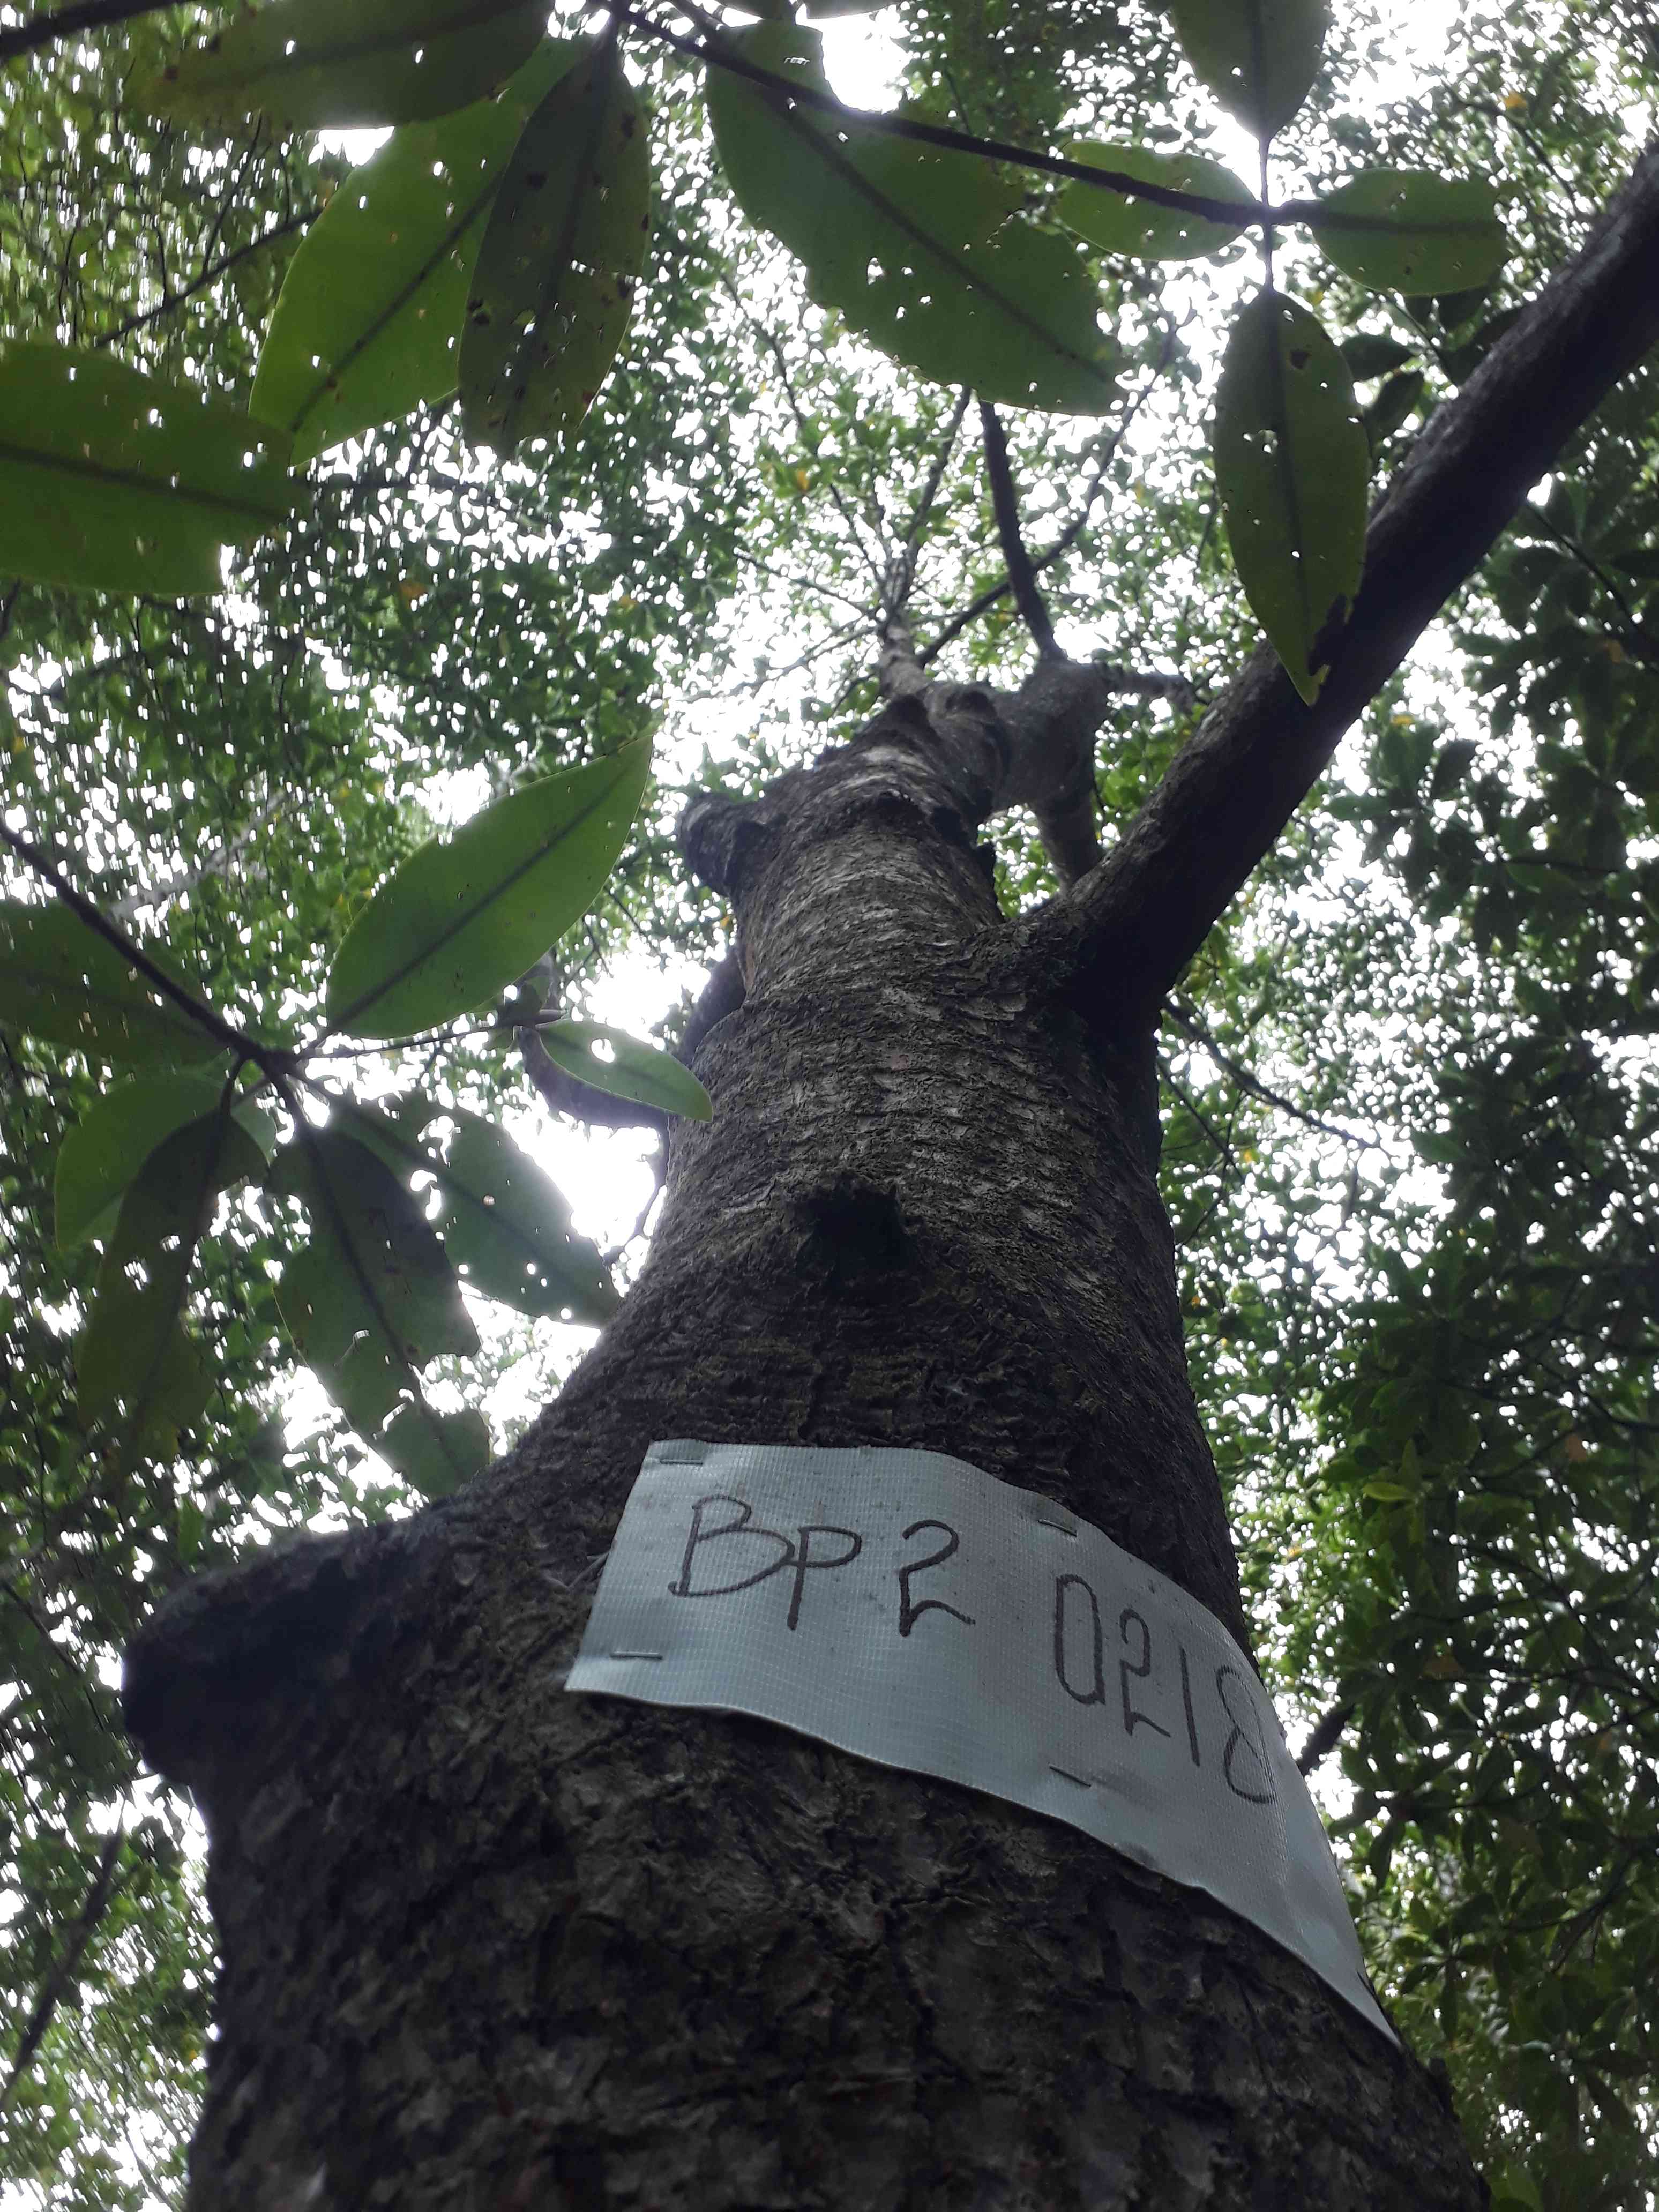 BP2 0218